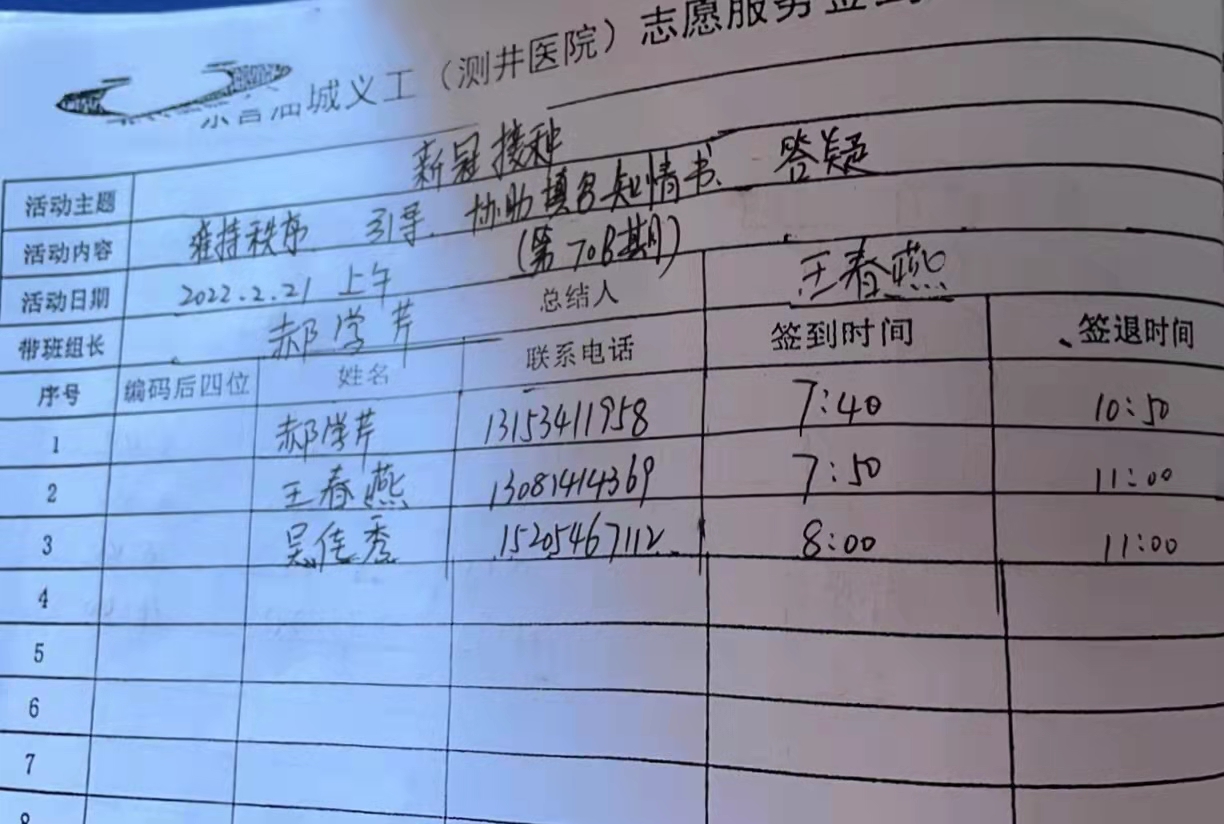 油城义工（测井医院）志愿服务签到
活动主题 新冠接种
活动内容 维持秩序 引导、协助填写知情书、答疑
(第708期)
活动日期 2022.2.21 上午 总结人 王春燕
带班组长 郝学芹
序号 编码后四位 姓名 联系电话 签到时间 签退时间
1 郝学芹 13153411958 7:40 10:50
2 王春燕 13081414369 7:50 11:00
3 吴佳秀 15205467112 8:00 11:00
4
5
6
7
8